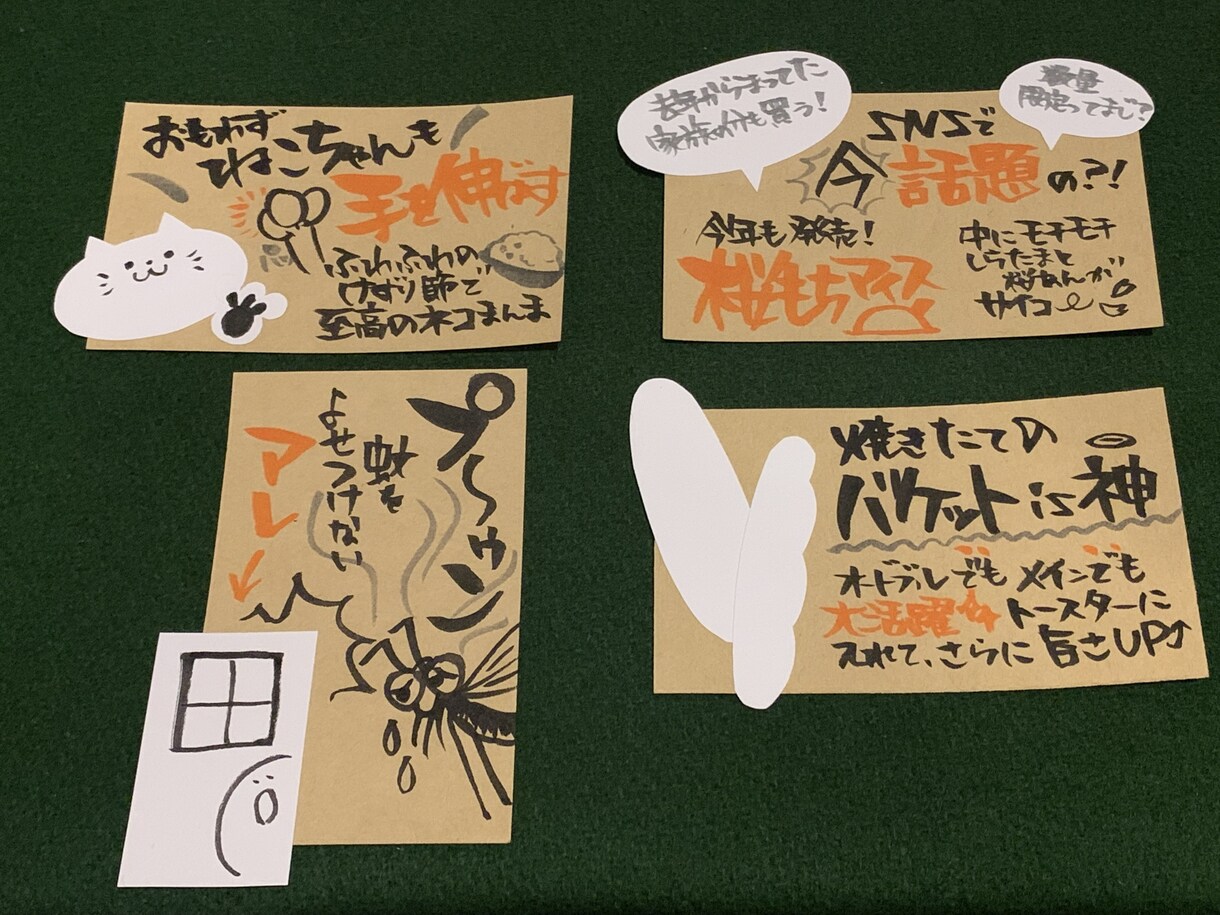 おもわず
ねこちゃんも
手を伸ばす
ふわふわの
けずり節で
至高のネコまんま
去年からまってた
家族の分も買う!
数量
限定ってまじ?
SNSで
今話題の?!
今年も発売!
桜もちアイス
中にモチモチ
しらたまと
桜あんが
サイコー
プ〜ゥン
蚊を
よせつけない
アレ↓
焼きたての
バケット is 神
オードブルでもメインでも
大活躍 トースターに
入れて、さらに旨さUP↑